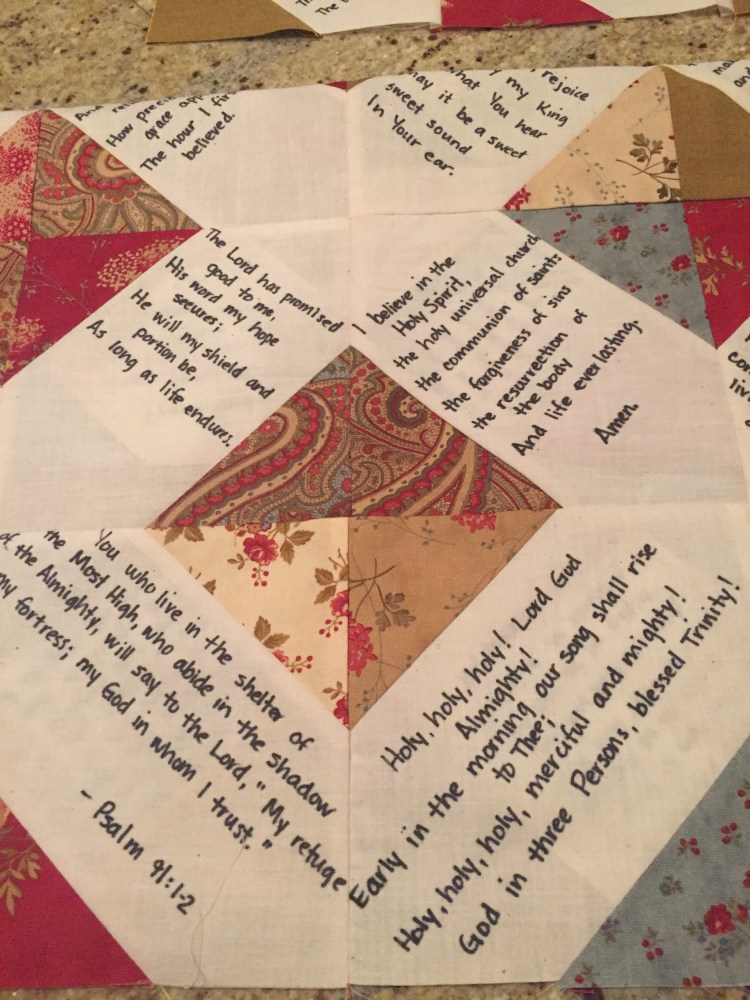 The
The b
And
How preci
grace app
The hour I fir
believed.
rejoice
my King
that You hear
may it be a sweet
sweet sound
In Your ear.
The Lord has promised
good to me,
His word my hope
secures;
He will my shield and
portion be,
As long as life endures.
I believe in the
Holy Spirit,
the holy universal church
the communion of saints
the forgiveness of sins
the resurrection of
the body
And life everlasting.
Amen.
You who live in the shelter of
the Most High, who abide in the shadow
of the Almighty, will say to the Lord, "My refuge
my fortress; my God in whom I trust."
- Psalm 91:1-2
Holy, holy, holy! Lord God
Almighty!
Early in the morning our song shall rise
to Thee;
Holy, holy, holy, merciful and mighty!
God in three Persons, blessed Trinity!